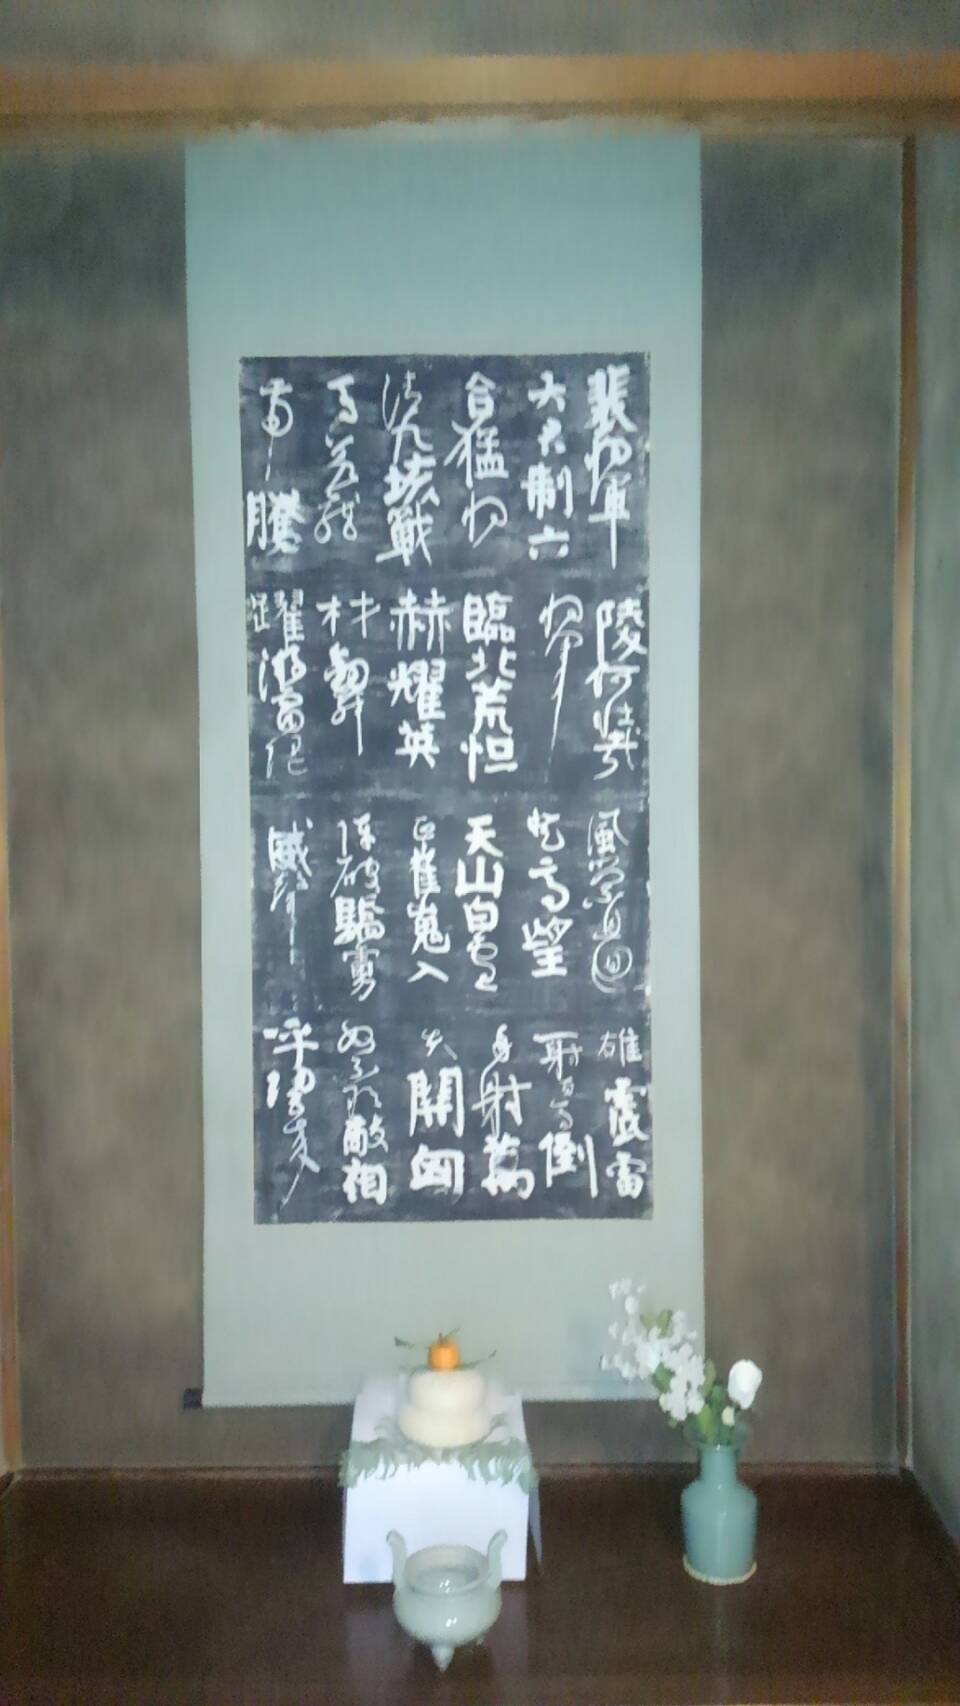 裴將軍
大君制六
合猛將
清九垓戰
馬若龍
虎騰
陵何壯哉
將軍
臨北荒恒
赫耀英
材劍舞
躍游電隨
風縈且迴
登高望
天山白雪
正崔嵬入
陣破驕虜
威聲
雄震雷
一射百馬倒
再射萬
夫開匈
奴不敢敵相
呼歸去來